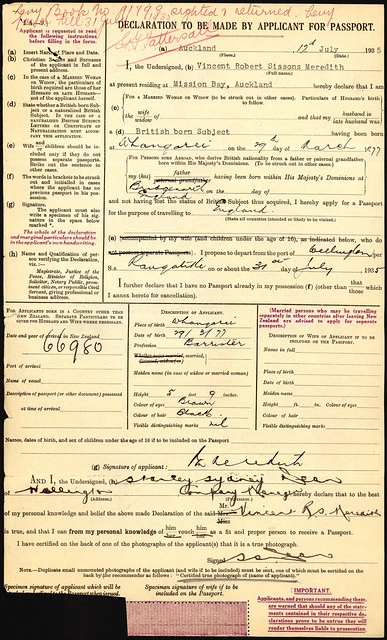 Levy Books no 11798 sighted & returned. Levy
DECLARATION TO BE MADE BY APPLICANT FOR PASSPORT.
Applicant is requested to read the following instructions before filling in the form.
(a) Insert Name of Place and Date.
(b) Christian Names and Surname of the applicant in full and present address.
(c) In the case of a MARRIED WOMAN OR WIDOW, the particulars of birth required are those of her HUSBAND OR LATE HUSBAND—not of the applicant herself.
(d) State whether a British-born Subject or a naturalized British Subject.
(e) Wife and children should be included only if they do not possess separate passports. Strike out the sentence in other cases.
(f) The words in brackets to be struck out and initialled in cases where the applicant has no previous passport in his possession.
(g) Signature.
The applicant must also write a specimen of his signature in the space below marked *.
The whole of the declaration and marginal particulars should be in the applicant's own handwriting.
(h) Name and Qualification of person verifying the Declaration, viz. :—
Magistrate, Justice of the Peace, Minister of Religion, Solicitor, Notary Public, prominent citizen, or responsible Civil Servant, giving professional or business address.
(a) Auckland 12th July 1935
(Place.) (Date.)
I, the Undersigned, (b) Vincent Robert Sissons Meredith
(Full name.)
at present residing at Mission Bay, Auckland hereby declare that I am
(c) wife of and that my husband is
widow late husband was
a (d) British born Subject having been born
at Whangarei on the 29th day of March 1877
FOR PERSONS BORN ABROAD, who derive British nationality from a father or paternal grandfather born within His Majesty's Dominions. (To be struck out in other cases.)
my (his) father having been born within His Majesty's Dominions at
on the day of
and not having lost the status of British Subject thus acquired, I hereby apply for a Passport
for the purpose of travelling to England
(State all countries intended or likely to be visited.)
(e) accompanied by my wife (and children under the age of 16), as indicated below, who do
not possess separate Passports. I propose to depart from the port of Wellington per
S.s. Rangatiki on or about 31st day of July 1935
I further declare that I have no Passport already in my possession (f) (other than that those which I
annex hereto for cancellation).
FOR APPLICANTS BORN IN A COUNTRY OTHER THAN NEW ZEALAND. SEPARATE PARTICULARS TO BE GIVEN FOR HUSBAND AND WIFE WHERE NECESSARY.
Date and year of arrival in New Zealand
66980
Port of arrival
Name of vessel
Description of passport (or other document) possessed
at time of arrival
DESCRIPTION OF APPLICANT.
Place of birth Whangarei
Date of birth 29/3/77
Profession Barrister
Maiden name (in case of widow or married woman)
Height 5 feet 9 inches.
Colour of eyes Brown
Colour of hair Black
Visible distinguishing marks nil
(Married persons who may be travelling separately in other countries after leaving New Zealand are advised to apply for separate passports.)
DESCRIPTION OF WIFE OF APPLICANT IF TO BE INCLUDED ON THE PASSPORT.
Names in full
Place of birth
Date of birth
Maiden name
Height ft. in. Colour of eyes
Colour of hair
Visible distinguishing marks
Names, dates of birth, and sex of children under the age of 16 if to be included on the Passport
(g) Signature of applicant:
AND I, the Undersigned, (h) Stanley Sydney Dean
of Wellington Company Manager hereby declare that to the best
(Address.) (Profession.)
of my personal knowledge and belief the above made Declaration of the said Mr. Vincent R.S. Meredith
is true, and that I can from my personal knowledge of him her vouch him her as a fit and proper person to receive a Passport.
I have certified on the back of one of the photographs of the applicant(s) that it is a true photograph.
Signed
NOTE.—Duplicate small unmounted photographs of the applicant (and wife if to be included) must be sent, one of which must be certified on the
back by the recommender as follows: "Certified true photograph of (name of applicant)."
Specimen signature of applicant which will be
Specimen signature of wife if to be
included on the Passport.
IMPORTANT.
Applicants, and persons recommending them, are warned that should any of the statements contained in their respective declarations prove to be untrue they will render themselves liable to prosecution.